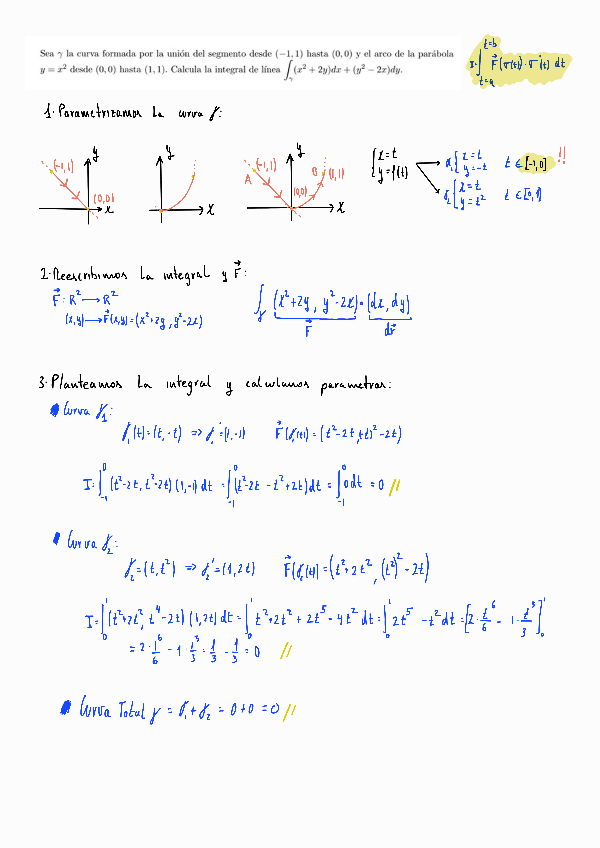 Sea γ la curva formada por la unión del segmento desde (−1, 1) hasta (0, 0) y el arco de la parábola
y = x² desde (0, 0) hasta (1, 1). Calcula la integral de línea ∫_γ (x² + 2y)dx + (y² − 2x)dy.
I = ∫_{t=a}^{t=b} F⃗(σ(t)) · σ'(t) dt
1. Parametrizamos la curva γ:
(-1,1) y (0,0) x
y x
(-1,1) A y B (1,1) (0,0) x
{x=t y=f(t)
γ₁ {x=t y=-t t ∈ [-1,0] !!
γ₂ {x=t y=t² t ∈ [0,1]
2. Reescribimos la integral y F⃗:
F⃗: R² → R²
(x,y) → F⃗(x,y) = (x²+2y, y²-2x)
∫_γ (x²+2y, y²-2x) · (dx, dy)
F⃗ dr⃗
3. Planteamos la integral y calculamos parametros:
Curva γ₁:
γ₁(t) = (t, -t) => γ₁' = (1, -1) F⃗(γ₁(t)) = (t²-2t, (-t)²-2t)
I = ∫_{-1}^{0} (t²-2t, t²-2t)(1,-1) dt = ∫_{-1}^{0} (t²-2t - t²+2t) dt = ∫_{-1}^{0} 0 dt = 0 //
Curva γ₂:
γ₂ = (t, t²) => γ₂' = (1, 2t) F⃗(γ₂(t)) = (t²+2t², (t²)²-2t)
I = ∫_0^1 (t²+2t², t⁴-2t)(1,2t) dt = ∫_0^1 t²+2t²+2t⁵-4t² dt = ∫_0^1 2t⁵-t² dt = [2·t⁶/6 - 1·t³/3]_0^1
= 2·1⁶/6 - 1·1³/3 = 1/3 - 1/3 = 0 //
Curva Total γ = γ₁ + γ₂ = 0+0 = 0 //